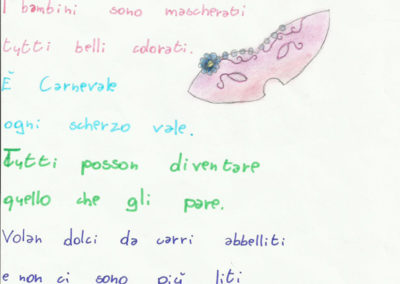 I bambini sono mascherati
tutti belli colorati.
È Carnevale
ogni scherzo vale.
Tutti posson diventare
quello che gli pare.
Volan dolci da carri abbelliti
e non ci sono più liti